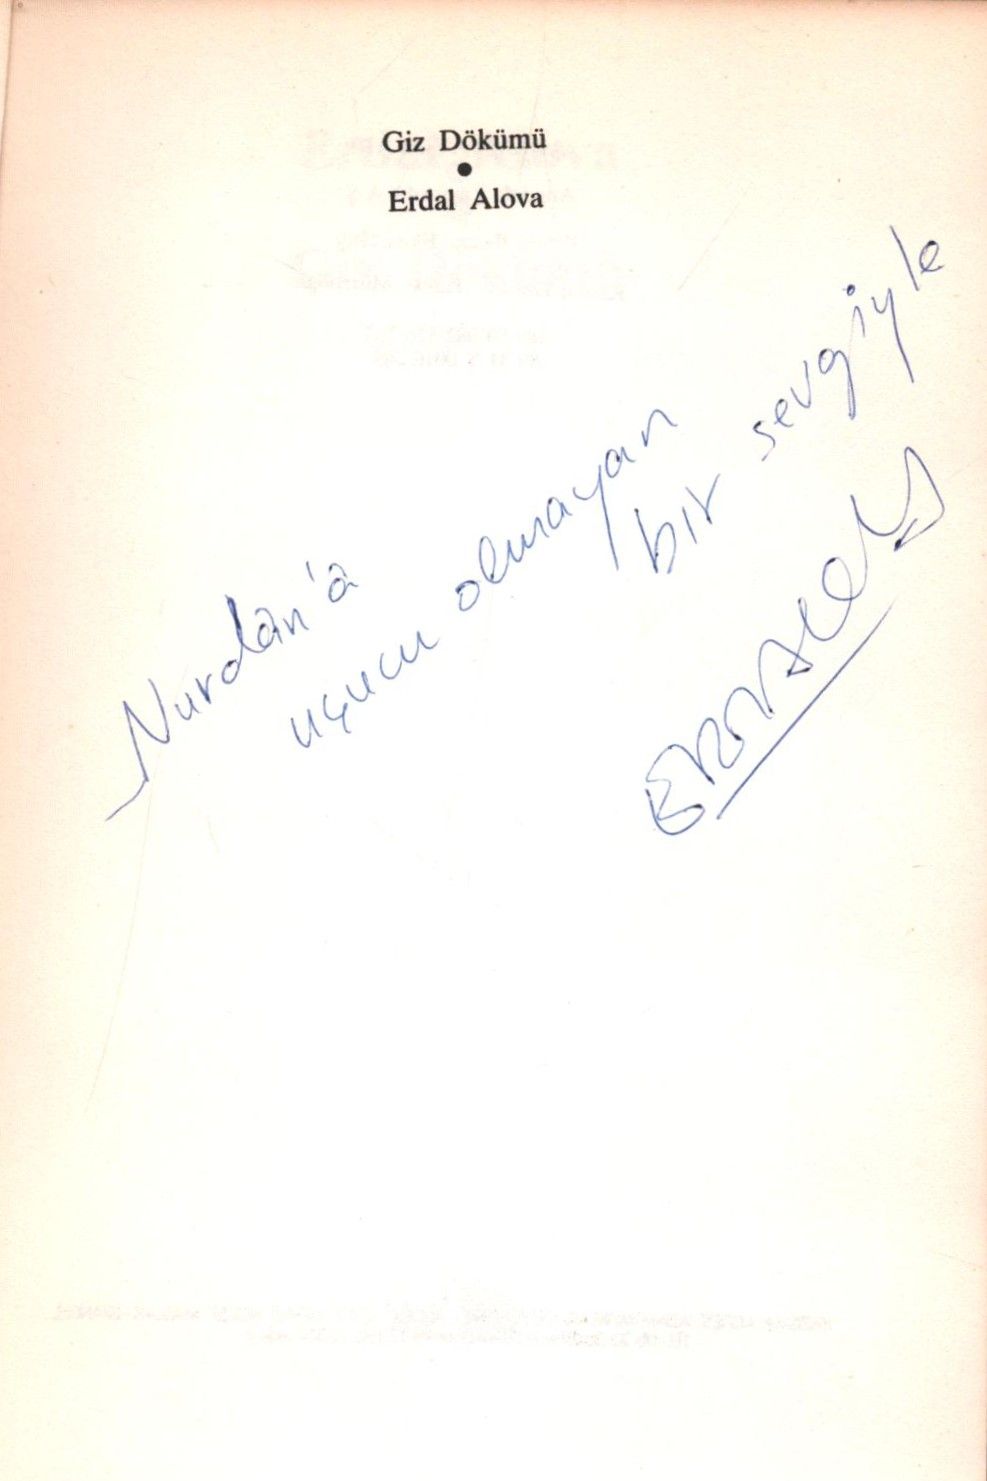 Giz Dökümü
●
Erdal Alova
Nurdan'a
uçucu olmayan
bir sevgiyle